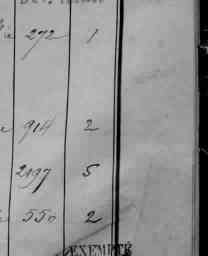 272 1
914 2
2197 5
550 2
EXEMPTÉ